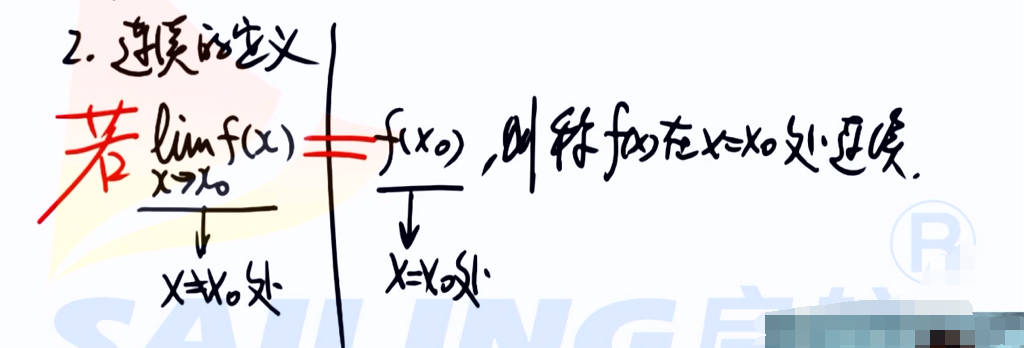 2. 连续的定义
若 lim f(x) = f(x₀), 则称 f(x) 在 x=x₀ 处连续.
x→x₀
x≠x₀处
x=x₀处
R
SAILING